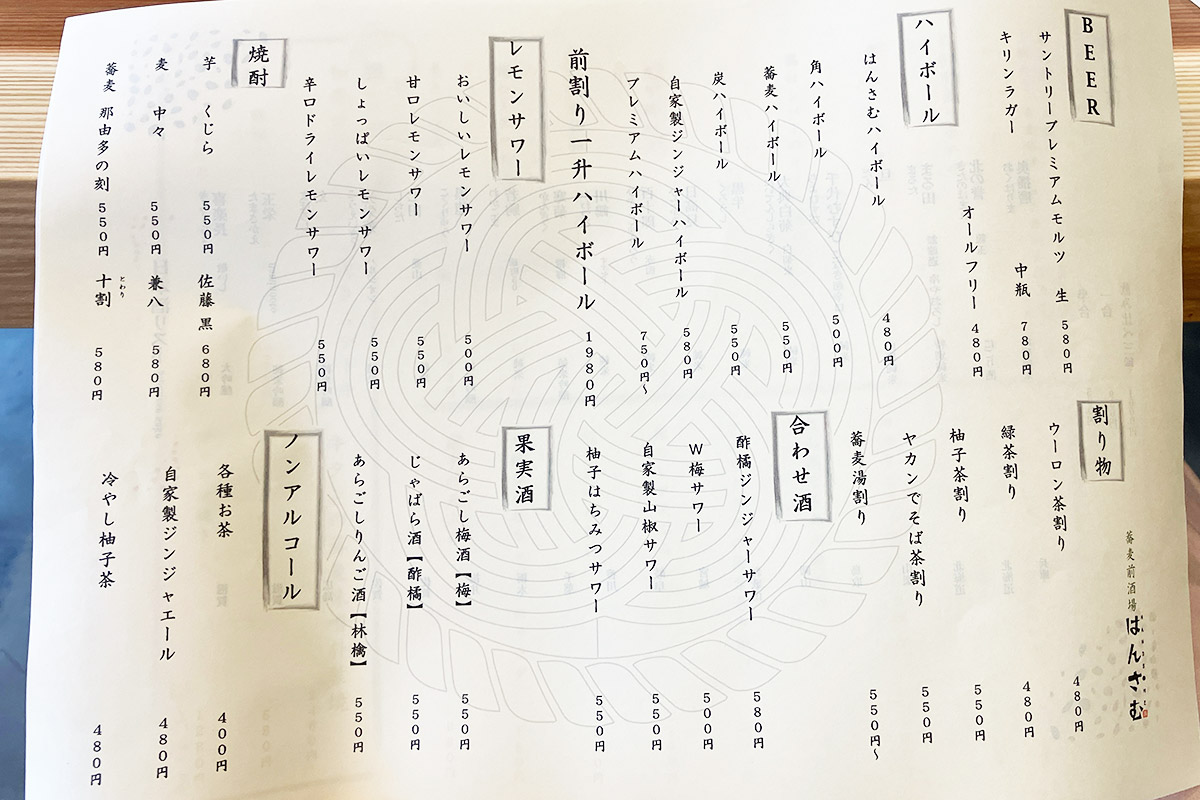 BEER
サントリープレミアムモルツ 生 580円
キリンラガー 中瓶 780円
オールフリー 480円
ハイボール
はんさむハイボール 480円
角ハイボール 500円
蕎麦ハイボール 550円
炭ハイボール 550円
自家製ジンジャーハイボール 580円
プレミアムハイボール 750円~
前割り一升ハイボール 1980円
レモンサワー
おいしいレモンサワー 500円
甘口レモンサワー 550円
しょっぱいレモンサワー 550円
辛口ドライレモンサワー 550円
焼酎
芋 くじら 550円 佐藤 黒 680円
麦 中々 550円 兼八 580円
蕎麦 那由多の刻 550円 十割 580円
とわり
割り物
ウーロン茶割り 480円
緑茶割り 480円
柚子茶割り 550円
ヤカンでそば茶割り 550円
蕎麦湯割り 550円~
合わせ酒
酢橘ジンジャーサワー 580円
W梅サワー 500円
自家製山椒サワー 550円
柚子はちみつサワー 550円
果実酒
あらごし梅酒【梅】 550円
じゃばら酒【酢橘】 550円
あらごしりんご酒【林檎】 550円
ノンアルコール
各種お茶 400円
自家製ジンジャエール 480円
冷やし柚子茶 480円
蕎麦前酒場
はんさむ